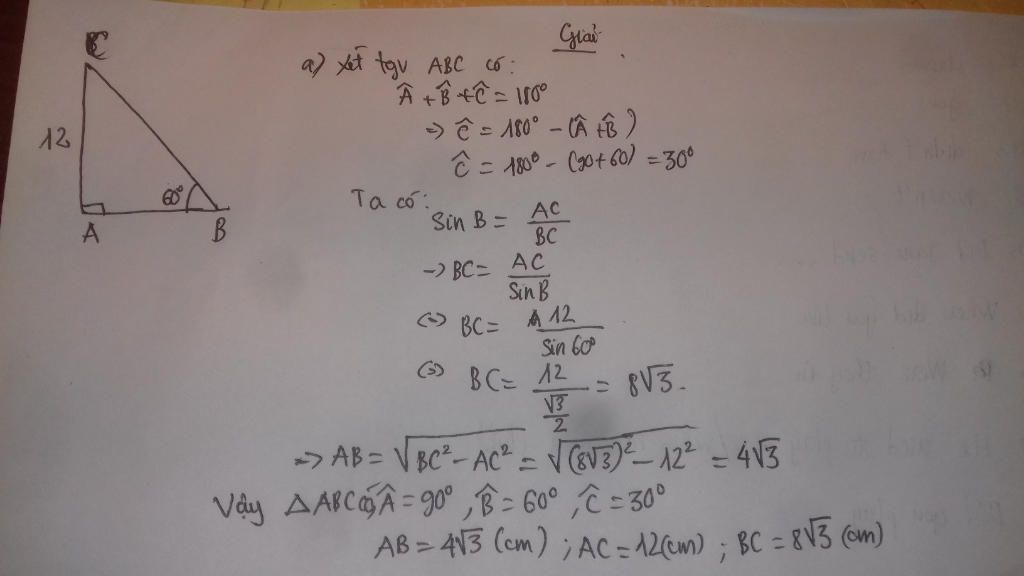 Giải
C
12
60°
A B
a) Xét tgv ABC có:
Â + B̂ + Ĉ = 180°
=> Ĉ = 180° - (Â + B̂)
Ĉ = 180° - (90+60) = 30°
Ta có:
Sin B = AC/BC
-> BC = AC/Sin B
(=) BC = 12/Sin 60°
(=) BC = 12/(√3/2) = 8√3.
=> AB = √(BC² - AC²) = √((8√3)² - 12²) = 4√3
Vậy △ABC có Â = 90°, B̂ = 60°, Ĉ = 30°
AB = 4√3 (cm) ; AC = 12(cm) ; BC = 8√3 (cm)